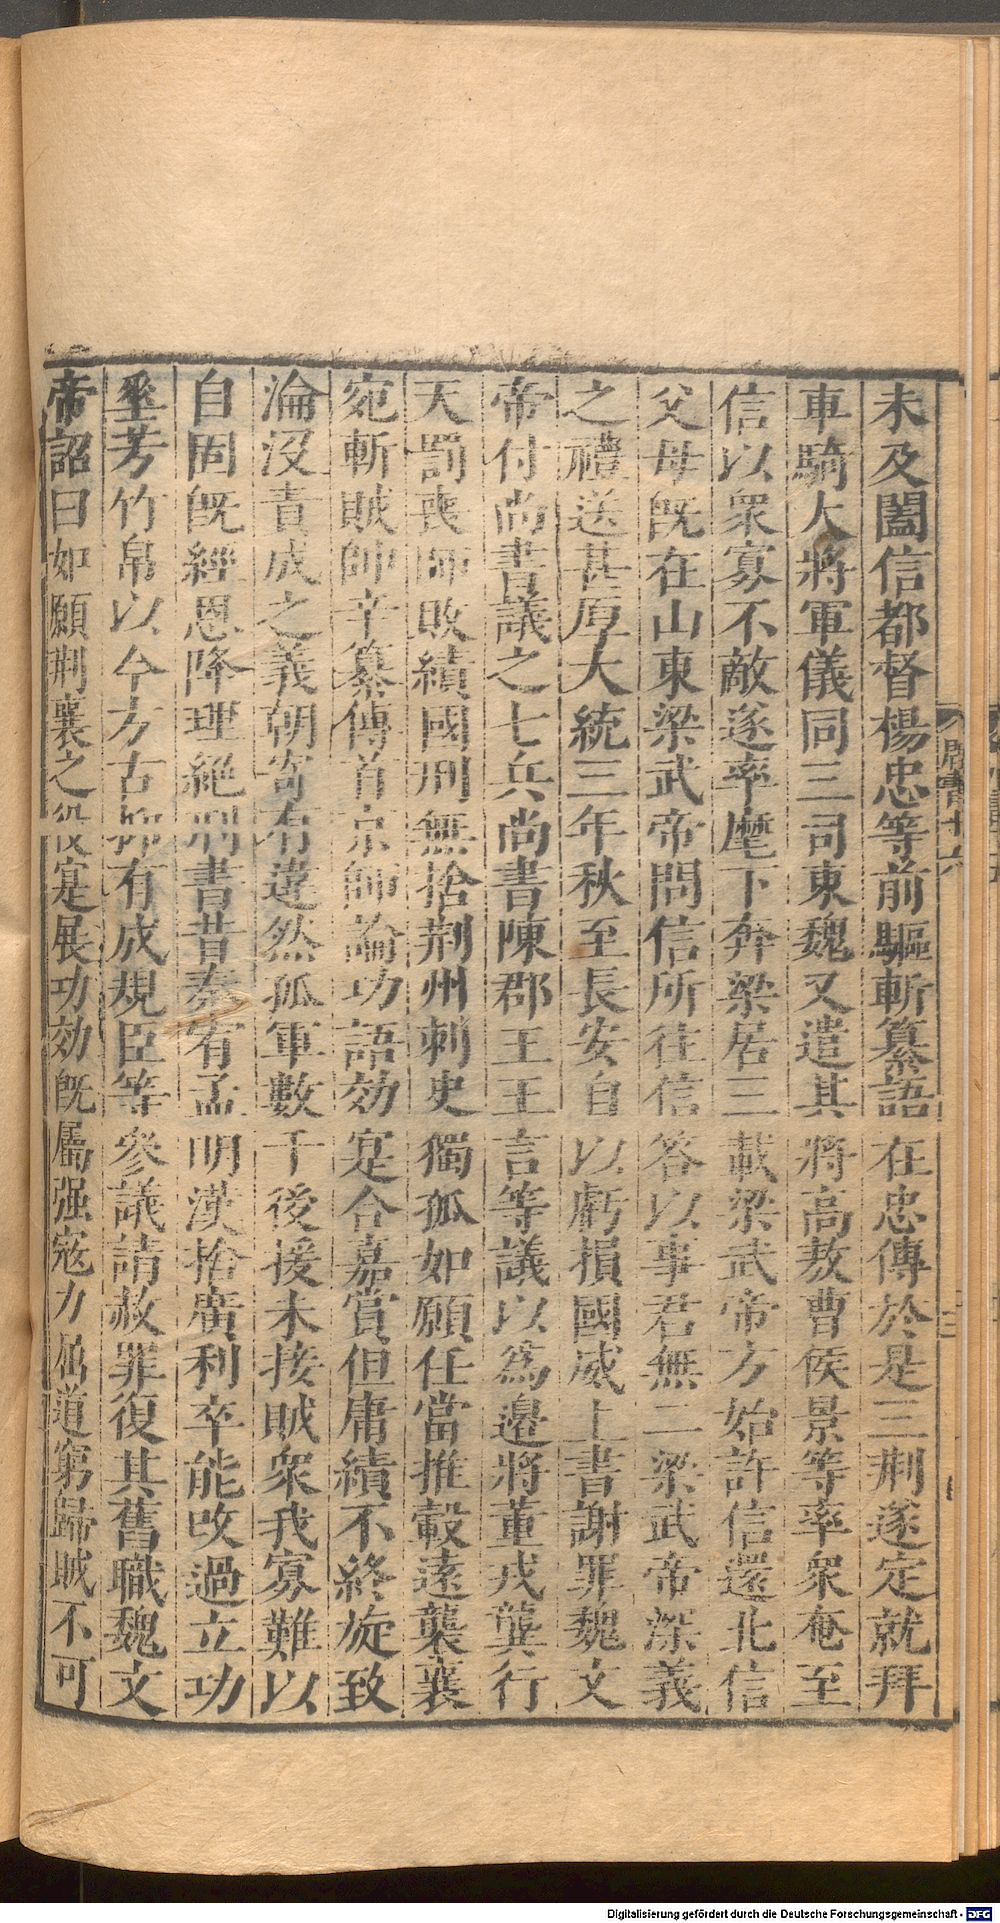 未及闔信都督楊忠等前驅斬纂語在忠傳於是三荆遂定就拜
車騎大將軍儀同三司東魏又遣其將高敖曹侯景等率衆奄至
信以衆寡不敵遂率麾下奔梁居三載梁武帝方始許信還北信
父母旣在山東梁武帝問信所往信答以事君無二梁武帝深義
之禮送甚厚大統三年秋至長安自以虧損國威上書謝罪魏文
帝付尚書議之七兵尚書陳郡王王言等議以爲邊將董戎龔行
天罰喪師敗績國刑無捨荆州刺史獨孤如願任當推轂遠襲襄
宛斬賊帥辛纂傳首京師論功語効寔合嘉賞但庸績不終旋致
淪没責成之義朝寄有違然孤軍數千後援未接賊衆我寡難以
自固旣經恩降理絶刑書昔秦宥孟明漢捨廣利卒能改過立功
垂芳竹帛以今方古抑有成規臣等參議請赦罪復其舊職魏文
帝詔曰如願荆襄之役寔展功効旣屬强寇力屈道窮歸賊不可
周書十六
Digitalisierung gefördert durch die Deutsche Forschungsgemeinschaft - DFG